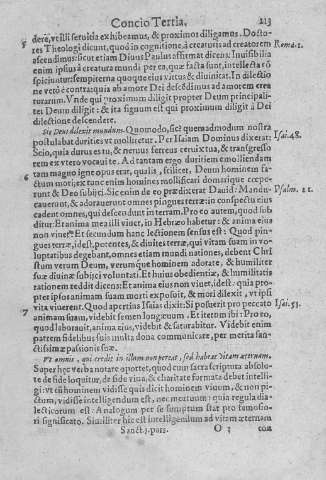 Concio Tertia. 213
dere, vt illi seruitia exhibeamus, & proximos diligamus. Docto-
res Theologi dicunt, quod in cognitione à creaturis ad creatorem Roma.1.
ascendimus: sicut etiam Diuus Paulus affirmat dicens: Inuisibilia
enim ipsius à creatura mundi per ea, quæ facta sunt, intellecta cō
spiciuntur: sempiterna quoque eius virtus & diuinitas. In dilectio
ne vetò è contra: quia ab amore Dei descēdimus ad amorem crea
turarum. Vnde qui proximum diligit propter Deum principali-
ter Deum diligit: & ita signum est qui proximum diligit à Dei
dilectione descendere.
Sic Deus dilexit mundum. Quomodo, sic: quemadmodum nostra
postulabat durities vt molliretur. Per Isaiam Dominus dixerat: Isai.48.
Scio, quia durus es tu, & neruus ferreus ceruix tua, & transgresso
rem ex vtero vocaui te. Ad tantam ergo duritiem emolliendam
tam magno igne opus erat, qualis, scilicet, Deum hominem fa-
6 ctum mori: ex tunc enim homines mollificari domarique cœpe-
runt, & Deo subijci. Sic enim de eo prædixerat Dauid: Mandu- Psalm.21.
cauerunt, & adorauerunt omnes pingues terræ: in conspectu eius
cadent omnes, qui descendunt in terram. Pro eo autem, quod sub
ditur: Et anima mea illi viuet, in Hebræo habetur: & anima eius
non viuet: Et secundum hanc lectionem sensus est: Quod pin-
gues terræ, id est, potentes, & diuites terræ, qui vitam suam in vo-
luptatibus degebant, omnes etiam mundi nationes, debent Chri
stum verum Deum, verumque hominem adorare, & humiliter
suæ diuinæ subijci voluntati. Et huius obedientiæ, & humilitatis
rationem reddit dicens: Et anima eius non viuet, id est: quia pro-
pter ipsos animam suam morti exposuit, & mori dilexit, vt ipsi
vita viuerent. Quod apertius Isaias dixit: Si posuerit pro peccato Isai.53.
7 animam suam, videbit semen longæuum. Et iterom ibi: Pro eo,
quod laborauit, anima eius, videbit & saturabitur. Videbit enim
patrem fidelibus suis multa dona communicare, per merita san-
ctissimæ passionis suæ.
Vt omnis, qui credit in illum non pereat, sed habeat vitam æternam.
Super hęc verba notare oportet, quod cum sacra scriptura absolu-
te de fide loquitur, de fide viua, & charitate formata debet intelli-
gi: vt cùm hominem vidisse quis dicit hominem viuum, & non pi-
ctum, vidisse intelligendum est, nec mortuum: quia regula dia-
lecticorum est: Analogum per se sumptum stat pro famosio-
ri significato. Similiter hic est intelligendum ad vitam æternam
Sanct.j.pars. O 3 con